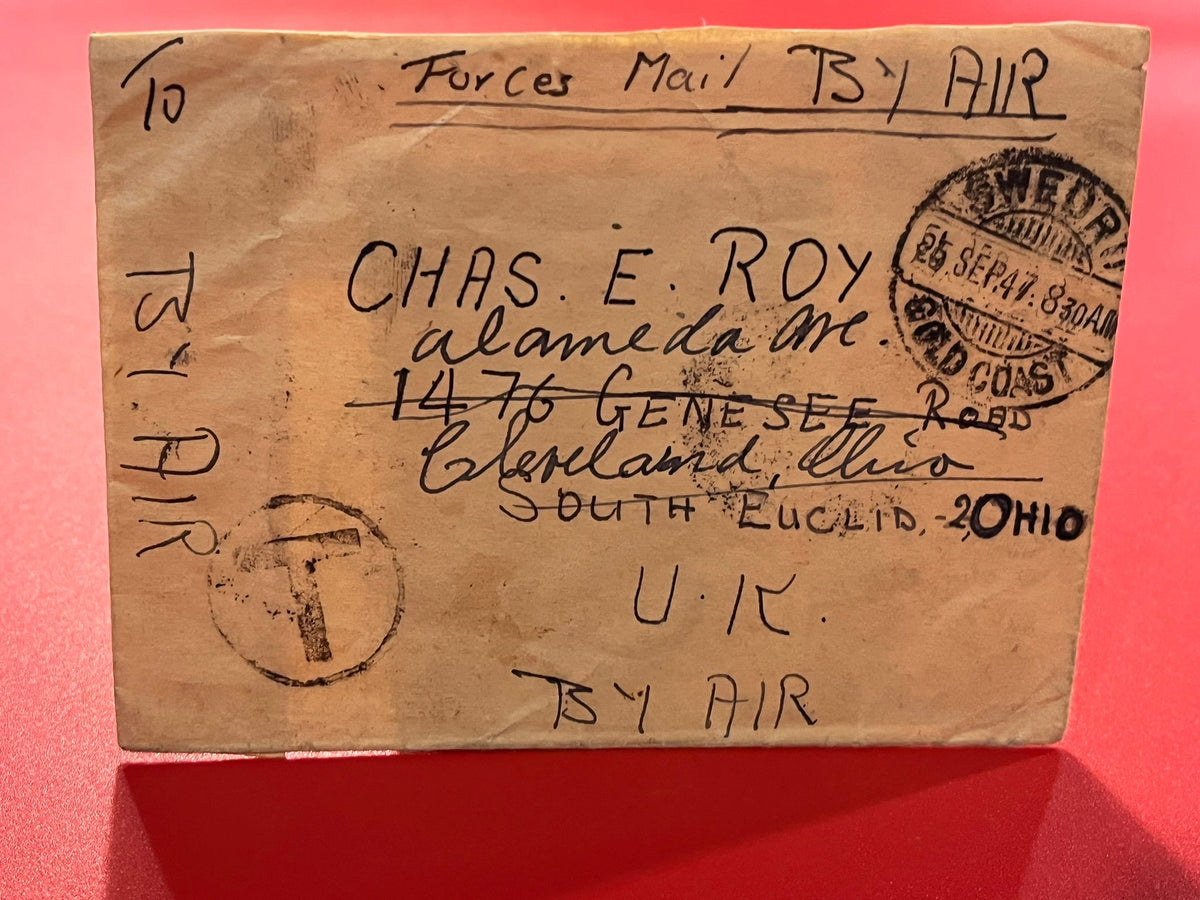 To
Forces Mail BY AIR
SWEDRU
25 SEP.47.830AM
GOLD COAST
CHAS. E. ROY
alameda ave.
1476 GENESEE ROAD
Cleveland, Ohio
SOUTH EUCLID,-2,OHIO
U.K.
BY AIR
BY AIR
T